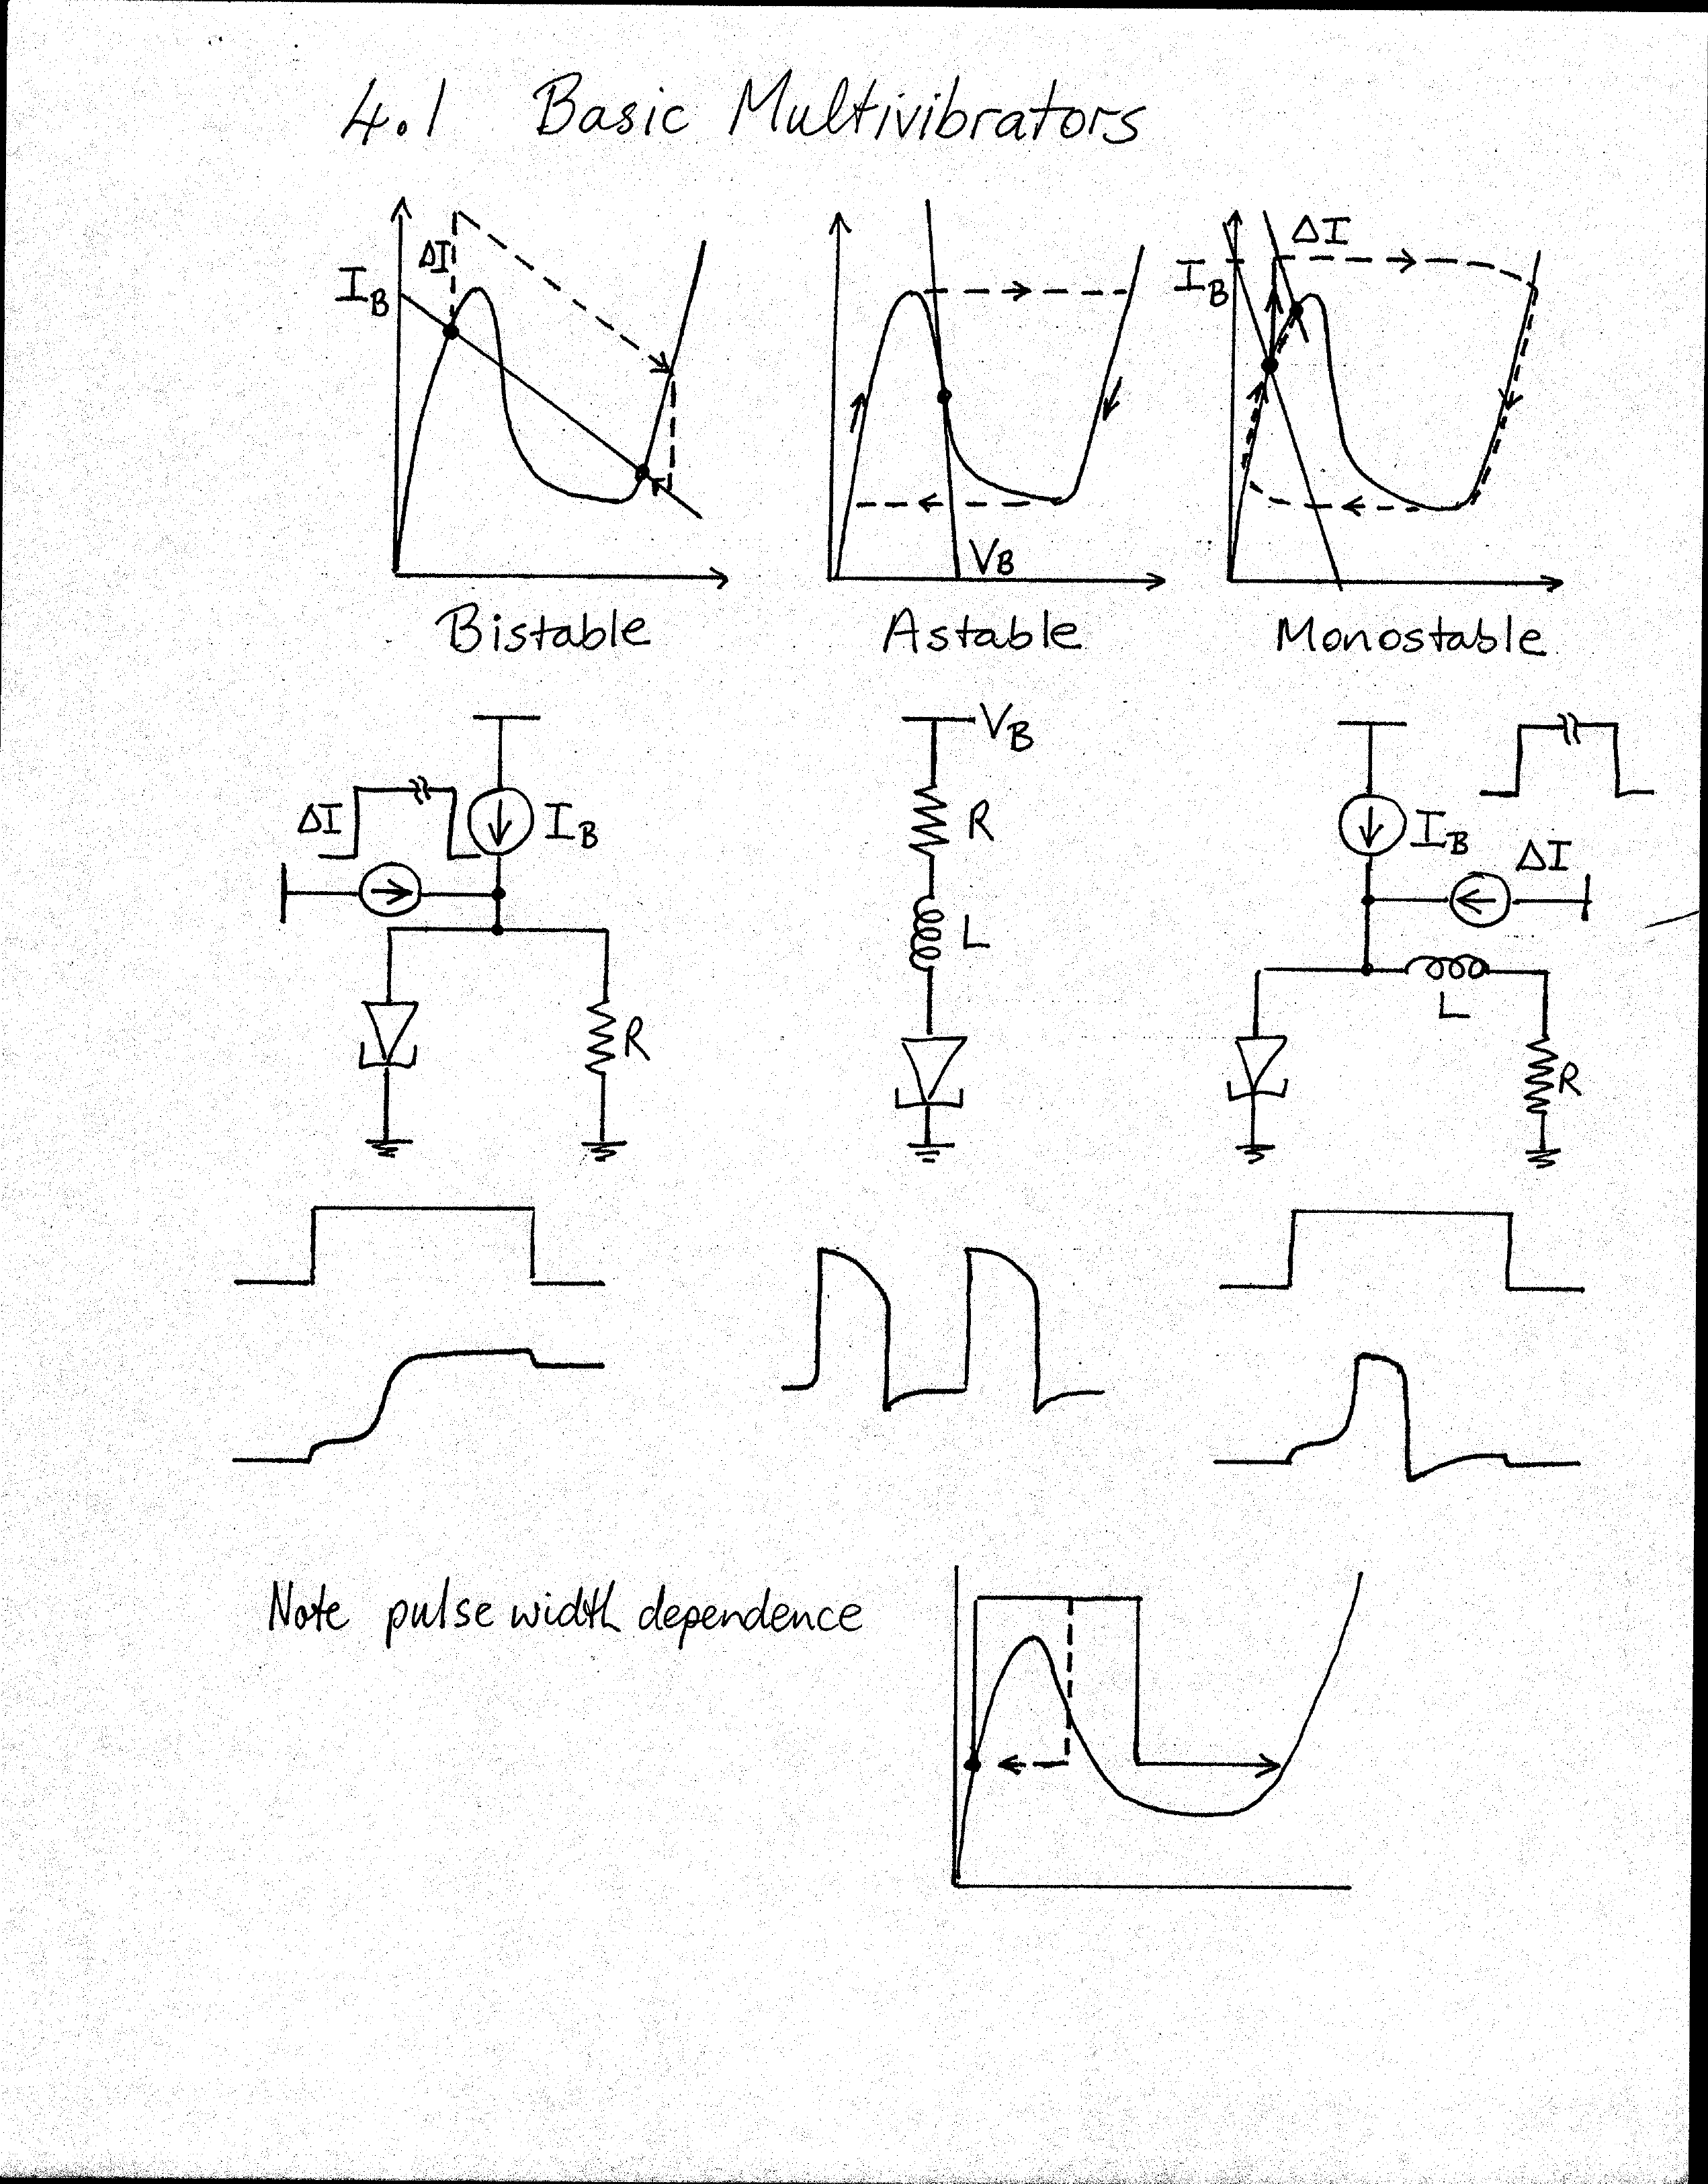 4.1 Basic Multivibrators
ΔI
I_B
V_B
ΔI
I_B
Bistable
Astable
Monostable
ΔI
I_B
R
V_B
R
L
I_B
ΔI
L
R
Note pulse width dependence